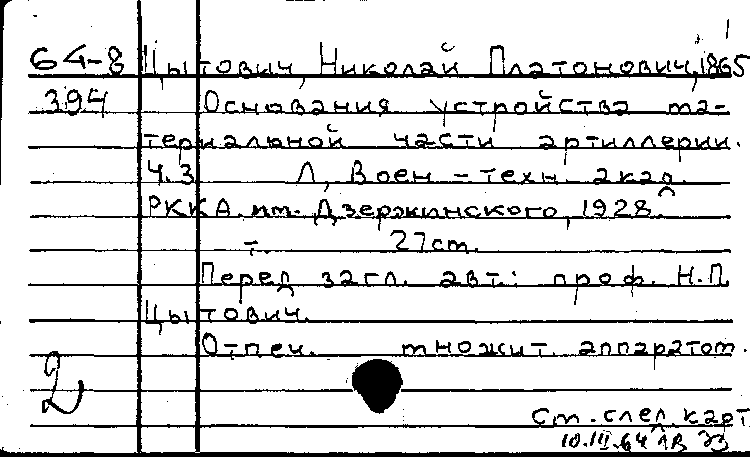 64-8 Цытович, Николай Платонович, 1865
394 Основания устройства ма-
териальной части артиллерии.
Ч.3 Л, Воен-техн. акад.
РККА им. Дзержинского, 1928.
т. 27см.
Перед загл. авт.: проф. Н.П.
Цытович.
Отпеч. множит. аппаратом.
2
См. след. карт
10.III.64